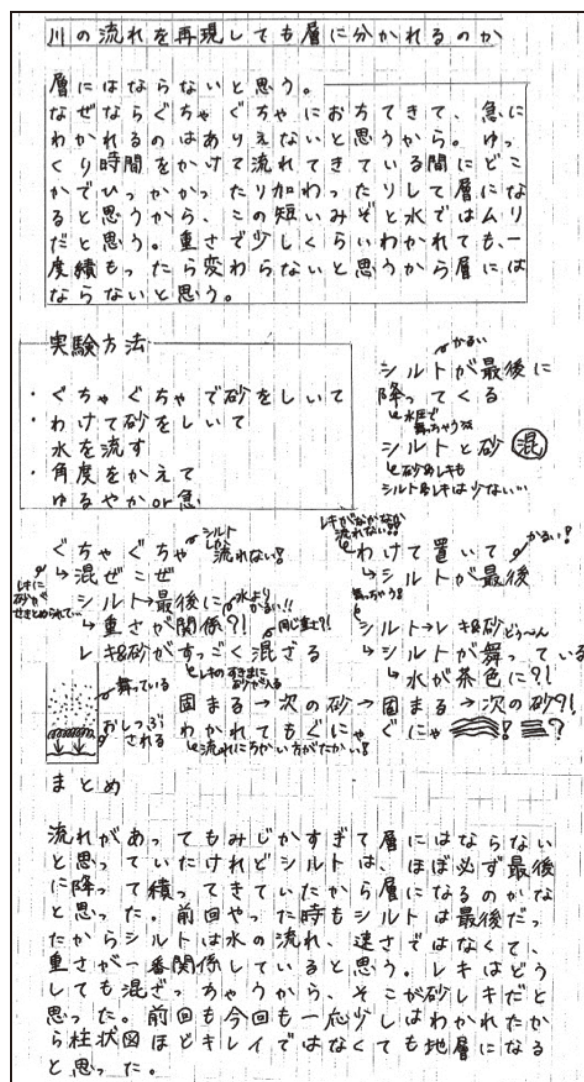 川の流れを再現しても層に分かれるのか
層にはならないと思う。
なぜならぐちゃぐちゃにおちてきて、急に
わかれるのはありえないと思うから。ゆっ
くり時間をかけて流れてきている間にどこ
かでひっかかったり加わったりして層にな
ると思うから、この短いみぞと水ではムリ
だと思う。重さで少しくらいわかれても、一
度積もったら変わらないと思うから層には
ならないと思う。
実験方法
・ぐちゃぐちゃで砂をしいて
・わけて砂をしいて
水を流す
・角度をかえて
ゆるやかor急
かるい
シルトが最後に
降ってくる
水圧で
舞っちゃう
シルトと砂 混
砂&レキも
シルト&レキは少ない…
ぐちゃぐちゃ
シルト
しか
流れない?
↳混ぜこぜ
レキに
砂が
せきとめられて…
シルト→最後に
水より
かるい!!
↳重さが関係?!
同じ重さ?!
レキ&砂がすっごく混ざる
レキのすきまに
砂が入る
レキがなかなか
流れない
わけて置いて
かるい?
↳シルトが最後
舞っちゃう?
シルト→レキ&砂
↳シルトが舞っている
↳水が茶色に?!
舞っている
おしつぶ
される
固まる→次の砂→固まる→次の砂?!
わかれてもぐにゃぐにゃ ! ?
流れにちかい方がたかい?
まとめ
流れがあってもみじかすぎて層にはならない
と思っていたけれどシルトは、ほぼ必ず最後
に降って積ってきていたから層になるのかな
と思った。前回やった時もシルトは最後だっ
たからシルトは水の流れ、速さではなくて、
重さが一番関係していると思う。レキはどう
しても混ざっちゃうから、そこが砂レキだと
思った。前回も今回も一応少しはわかれたか
ら柱状図ほどキレイではなくても地層になる
と思った。